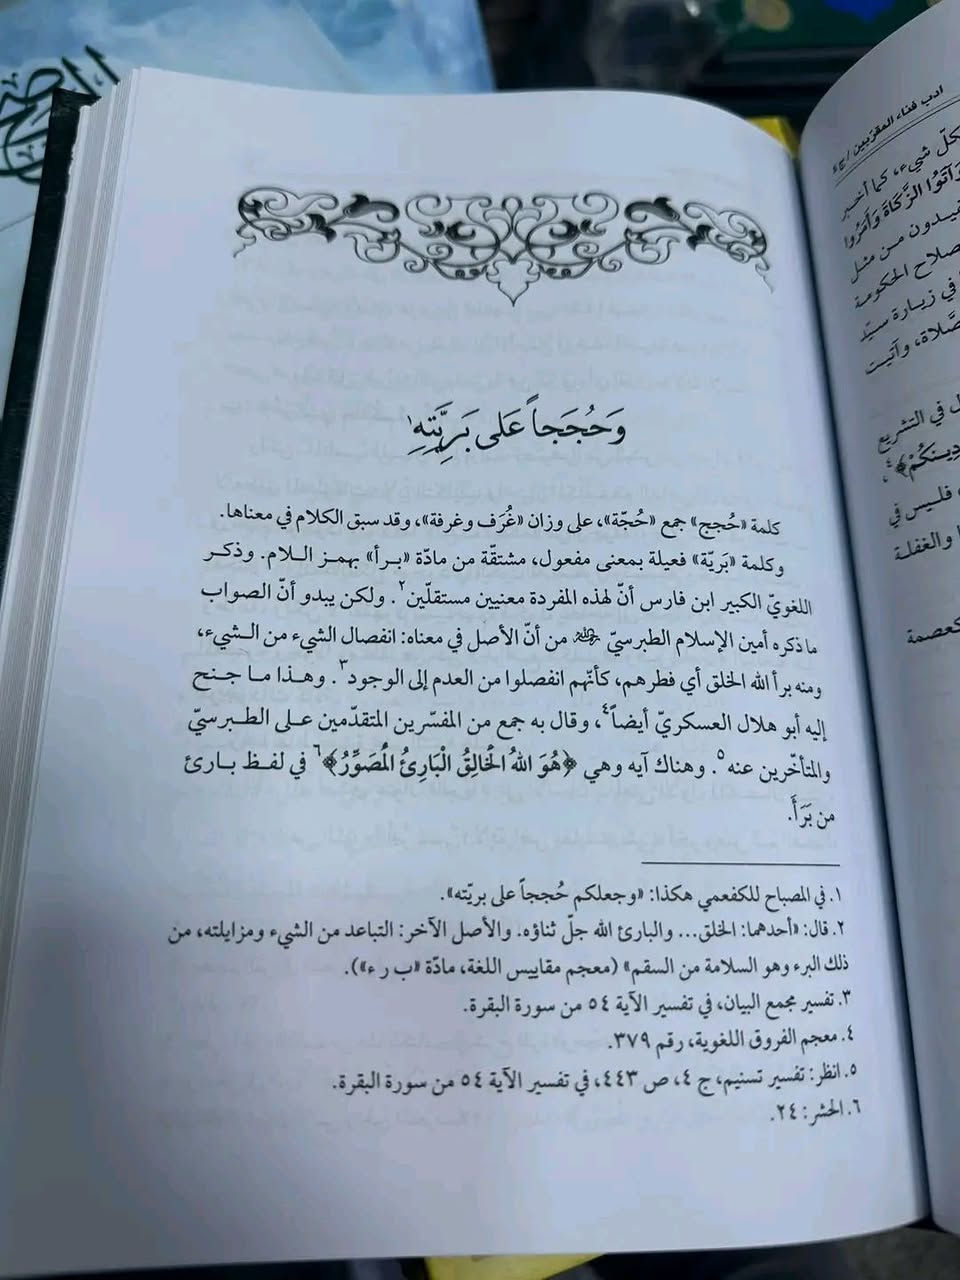 وَحُجَجاً عَلى بَرِيَّتِهِ١
كلمة «حُجج» جمع «حُجّة»، على وزان «غُرَف وغرفة»، وقد سبق الكلام في معناها.
وكلمة «بَريّة» فعيلة بمعنى مفعول، مشتقّة من مادّة «برأ» بهمز اللام. وذكر
اللغويّ الكبير ابن فارس أنّ لهذه المفردة معنيين مستقلّين٢. ولكن يبدو أنّ الصواب
ما ذكره أمين الإسلام الطبرسيّ من أنّ الأصل في معناه: انفصال الشيء من الشيء،
ومنه برأ الله الخلق أي فطرهم، كأنّهم انفصلوا من العدم إلى الوجود٣. وهذا ما جنح
إليه أبو هلال العسكريّ أيضاً٤، وقال به جمع من المفسّرين المتقدّمين على الطبرسيّ
والمتأخّرين عنه٥. وهناك آيه وهي ﴿هُوَ اللهُ الْخَالِقُ الْبَارِئُ الْمُصَوِّرُ﴾٦ في لفظ بارئ
من بَرَأَ.
١. في المصباح للكفعمي هكذا: «وجعلكم حُججاً على بريّته».
٢. قال: «أحدهما: الخلق... والبارئ الله جلّ ثناؤه. والأصل الآخر: التباعد من الشيء ومزايلته، من
ذلك البرء وهو السلامة من السقم» (معجم مقاييس اللغة، مادّة «ب ر ء»).
٣. تفسير مجمع البيان، في تفسير الآية ٥٤ من سورة البقرة.
٤. معجم الفروق اللغوية، رقم ٣٧٩.
٥. انظر: تفسير تسنيم، ج ٤، ص ٤٤٣، في تفسير الآية ٥٤ من سورة البقرة.
٦. الحشر: ٢٤.
ادب فناء المقرّبين / ج٤
كلّ شيء، كما أخبر
وَآتَوُا الزَّكَاةَ وَأَمَرُوا
يفيدون من مثل
صلاح الحكومة
في زيارة سيّد
الصَّلاة، وآتيت
ل في التشريع
دِينَكُمْ﴾٤،
، فليس في
ا والغفلة
كعصمة